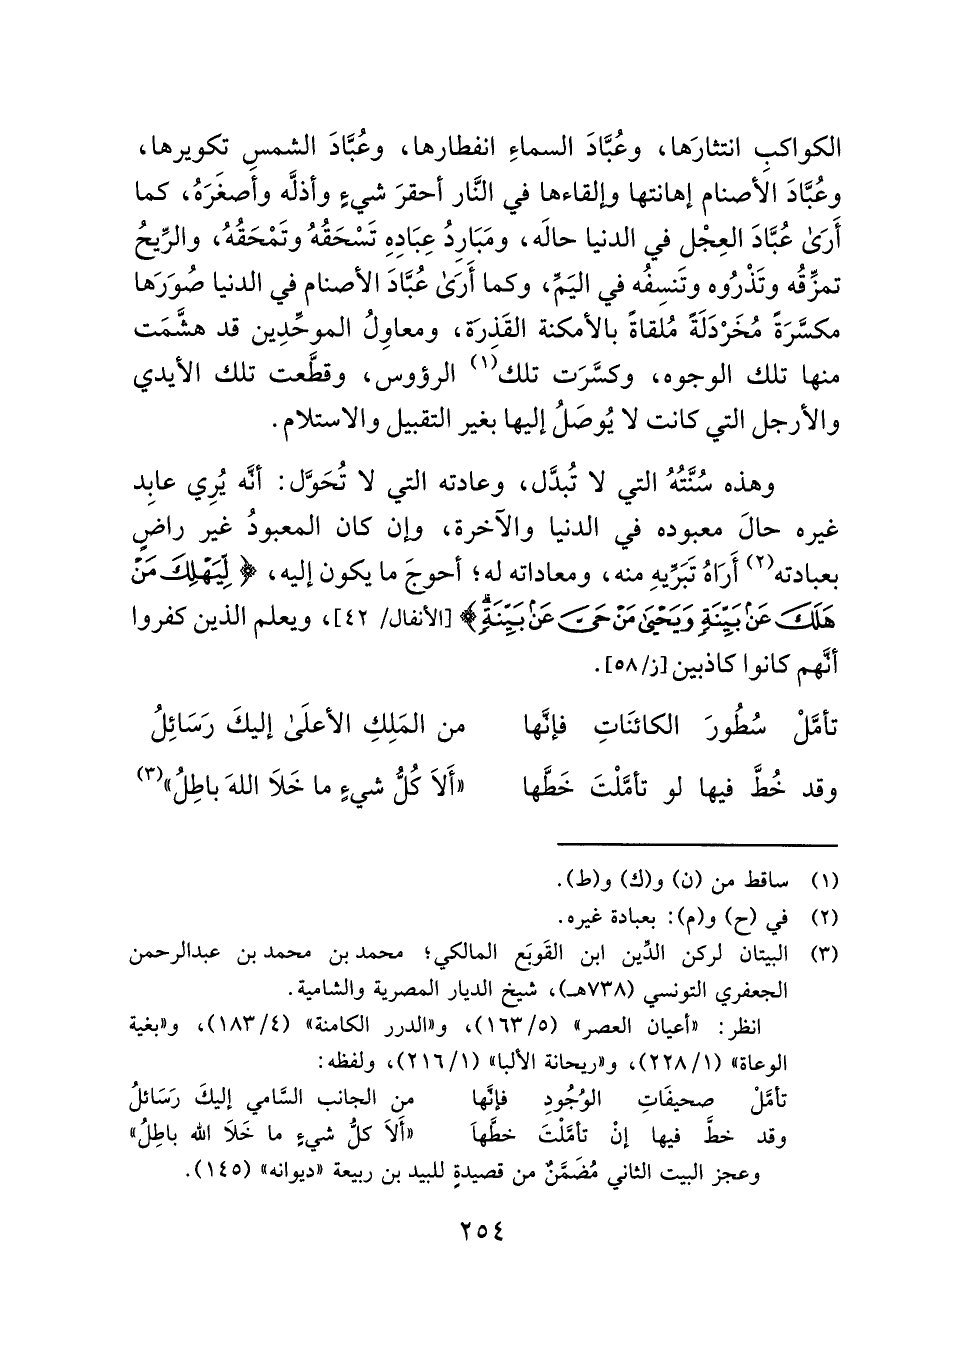 الكواكبِ انتثارَها، وعُبَّادَ السماءِ انفطارها، وعُبَّادَ الشمسِ تكويرها،
وعُبَّادَ الأصنام إهانتها وإلقاءها في النَّار أحقرَ شيءٍ وأذلَّه وأصغَرَهُ، كما
أَرَىٰ عُبَّادَ العِجْل في الدنيا حالَه، ومَبَارِدُ عِبَادِهِ تَسْحَقُهُ وتَمْحَقُهُ، والرِّيحُ
تمزِّقُه وتَذْرُوه وتَنسِفُه في اليَمِّ، وكما أَرَىٰ عُبَّادَ الأصنام في الدنيا صُوَرَها
مكسَّرَةً مُخَرْدَلَةً مُلقاةً بالأمكنة القَذِرَة، ومعاوِلُ الموحِّدِين قد هشَّمَت
منها تلك الوجوه، وكسَّرَت تلك(١) الرؤوس، وقطَّعت تلك الأيدي
والأرجل التي كانت لا يُوصَلُ إليها بغير التقبيل والاستلام.
وهذه سُنَّتُهُ التي لا تُبدَّل، وعادته التي لا تُحَوَّل: أنَّه يُرِي عابِد
غيره حالَ معبوده في الدنيا والآخرة، وإن كان المعبودُ غير راضٍ
بعبادته(٢) أَرَاهُ تَبَرِّيهِ منه، ومعاداته له؛ أحوجَ ما يكون إليه، ﴿ لِّيَهْلِكَ مَنْ
هَلَكَ عَنۢ بَيِّنَةٍ وَيَحْيَىٰ مَنْ حَىَّ عَنۢ بَيِّنَةٍۗ ﴾ [الأنفال/ ٤٢]، ويعلم الذين كفروا
أنَّهم كانوا كاذبين [ز/٥٨].
تأمَّلْ سُطُورَ الكائنَاتِ فإنَّها من المَلِكِ الأعلَىٰ إليكَ رَسَائِلُ
وقد خُطَّ فيها لو تأمَّلْتَ خَطَّها «أَلاَ كُلُّ شيءٍ ما خَلَا اللهَ باطِلُ»(٣)
(١) ساقط من (ن) و(ك) و(ط).
(٢) في (ح) و(م): بعبادة غيره.
(٣) البيتان لركن الدِّين ابن القَوبَع المالكي؛ محمد بن محمد بن عبدالرحمن
الجعفري التونسي (٧٣٨هـ)، شيخ الديار المصرية والشامية.
انظر: «أعيان العصر» (٥/ ١٦٣)، و«الدرر الكامنة» (٤/ ١٨٣)، و«بغية
الوعاة» (١/ ٢٢٨)، و«ريحانة الألبا» (١/ ٢١٦)، ولفظه:
تأمَّلْ صحيفَاتِ الوُجُودِ فإنَّها من الجانب السَّامي إليكَ رَسَائلُ
وقد خطَّ فيها إنْ تأمَّلْتَ خطَّهاَ «أَلاَ كلُّ شيءٍ ما خَلَا الله باطِلُ»
وعجز البيت الثاني مُضَمَّنٌ من قصيدةٍ للبيد بن ربيعة «ديوانه» (١٤٥).
٢٥٤